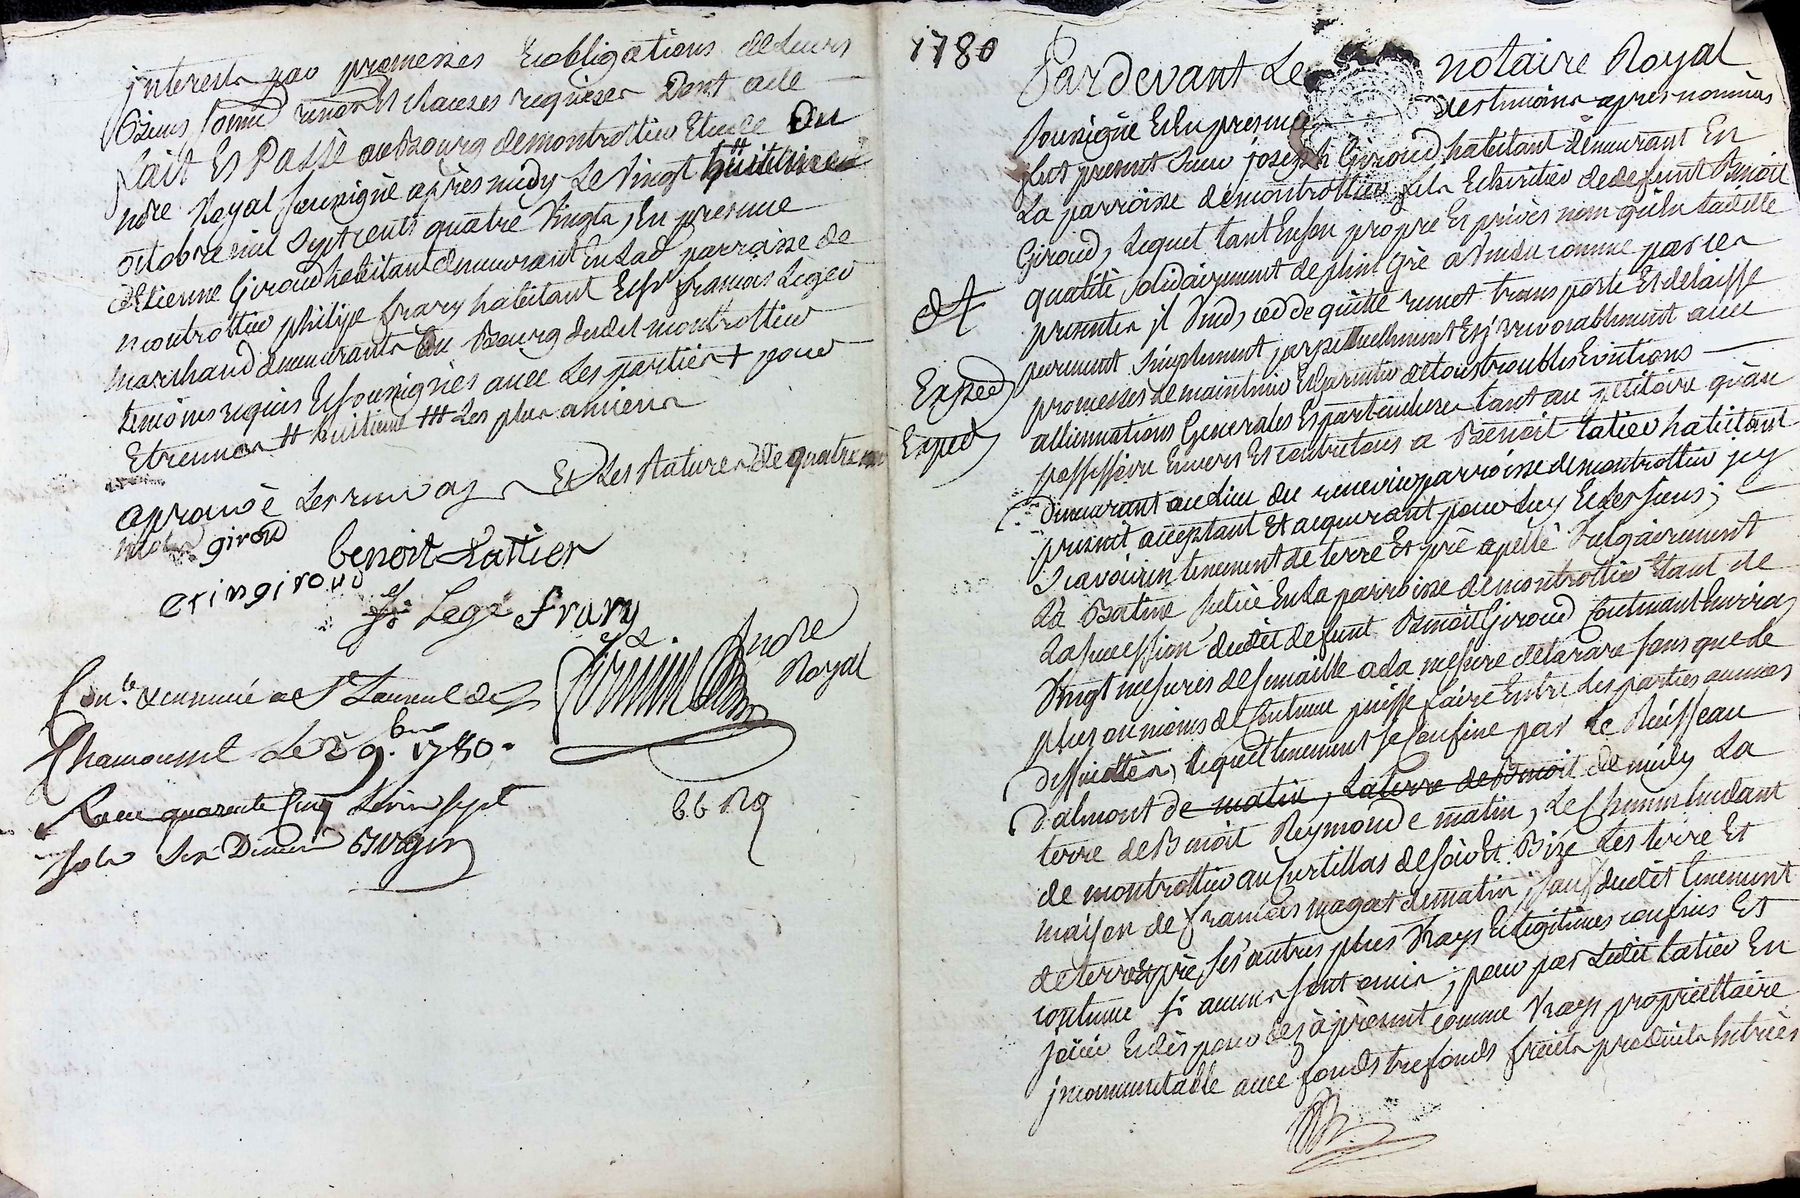 interets par promesses Et obligations de Leurs
Biens soumis renont clauses requises Dont acte
fait Et Passé au Bourg de montrottier Etude Du
nore Royal soussigné après midy Le Vingt huitieme
octobre mil Sept cents quatre Vingts, En presence
d'Etienne Giroud habitant demeurant En lad parroisse de
montrottier philipe frary habitant Et sr françois Leger
marchand demeurants Au Bourg dudit montrottier
temoins requis Et soussignés avec Les parties + pour
Etrennes # huitieme ### Les plus anciens
aprouvé Les renvoy Et Les Ratures de quatre
mots giroud
benoit Lattier
etin giroud
fs Legé frary
André
Royal
Con.té & enminé a St Laurent de
Chamousset Le 2 9.bre 1780.
Recu quarente Cinq Livres Sept
Sols Six Deniers
1780
Pardevant Le notaire Royal
soussigné Et En presence des temoins apres nommés
fut present sieur joseph Giroud habitant demeurant En
La parroisse de montrottier fils Et heritier de defunt Benoit
Giroud, Lequel tant En son propre Et privés nom qu'En ladite
qualité solidairement de plein gré a Vendu comme par ces
presentes il Vend, cede quitte remet transporte Et delaisse
purement simplement perpetuellement Et irrevocablement avec
promesses de maintenir Et garentir de tous troubles Evictions
alliennations Generales Et particulieres tant au petitoire qu'au
possessoire Envers Et contre tous a Benoit Latier habitant
Demeurant au Lieu du parroisse de montrottier icy
present acceptant Et acquerant pour Luy Et Les siens ;
Scavoir un tenement de terre Et pré apellé Vulgairement
La Batine Situé En La parroisse de montrottier Etant de
La succession dudit defunt Benoit Giroud Contenant Environ
Vingt mesures de semaille a la mesure de tarare sans que Le
plus ou moins de Contenue puisse faire Entre Les parties aucunes
difficultés, Lequel tenement se Confine par Le Ruisseau
D'almont de matin, La terre de Benoit de midy La
terre de Benoit Reymond de matin, Le Chemin tendant
de montrottier au Curtillas de soir Et Bize Les terre Et
maison de françois magat de matin ; sauf dudit tenement
de terre Et pré, ses autres plus Vrays Et legitimes confins Et
contenue si aucuns sont omis ; pour par Ledit Latier En
joüir Et des pour dez à present comme Vray proprietaire
incommutable avec fonds tréfonds fruits produits Entrées
Exped
Exped